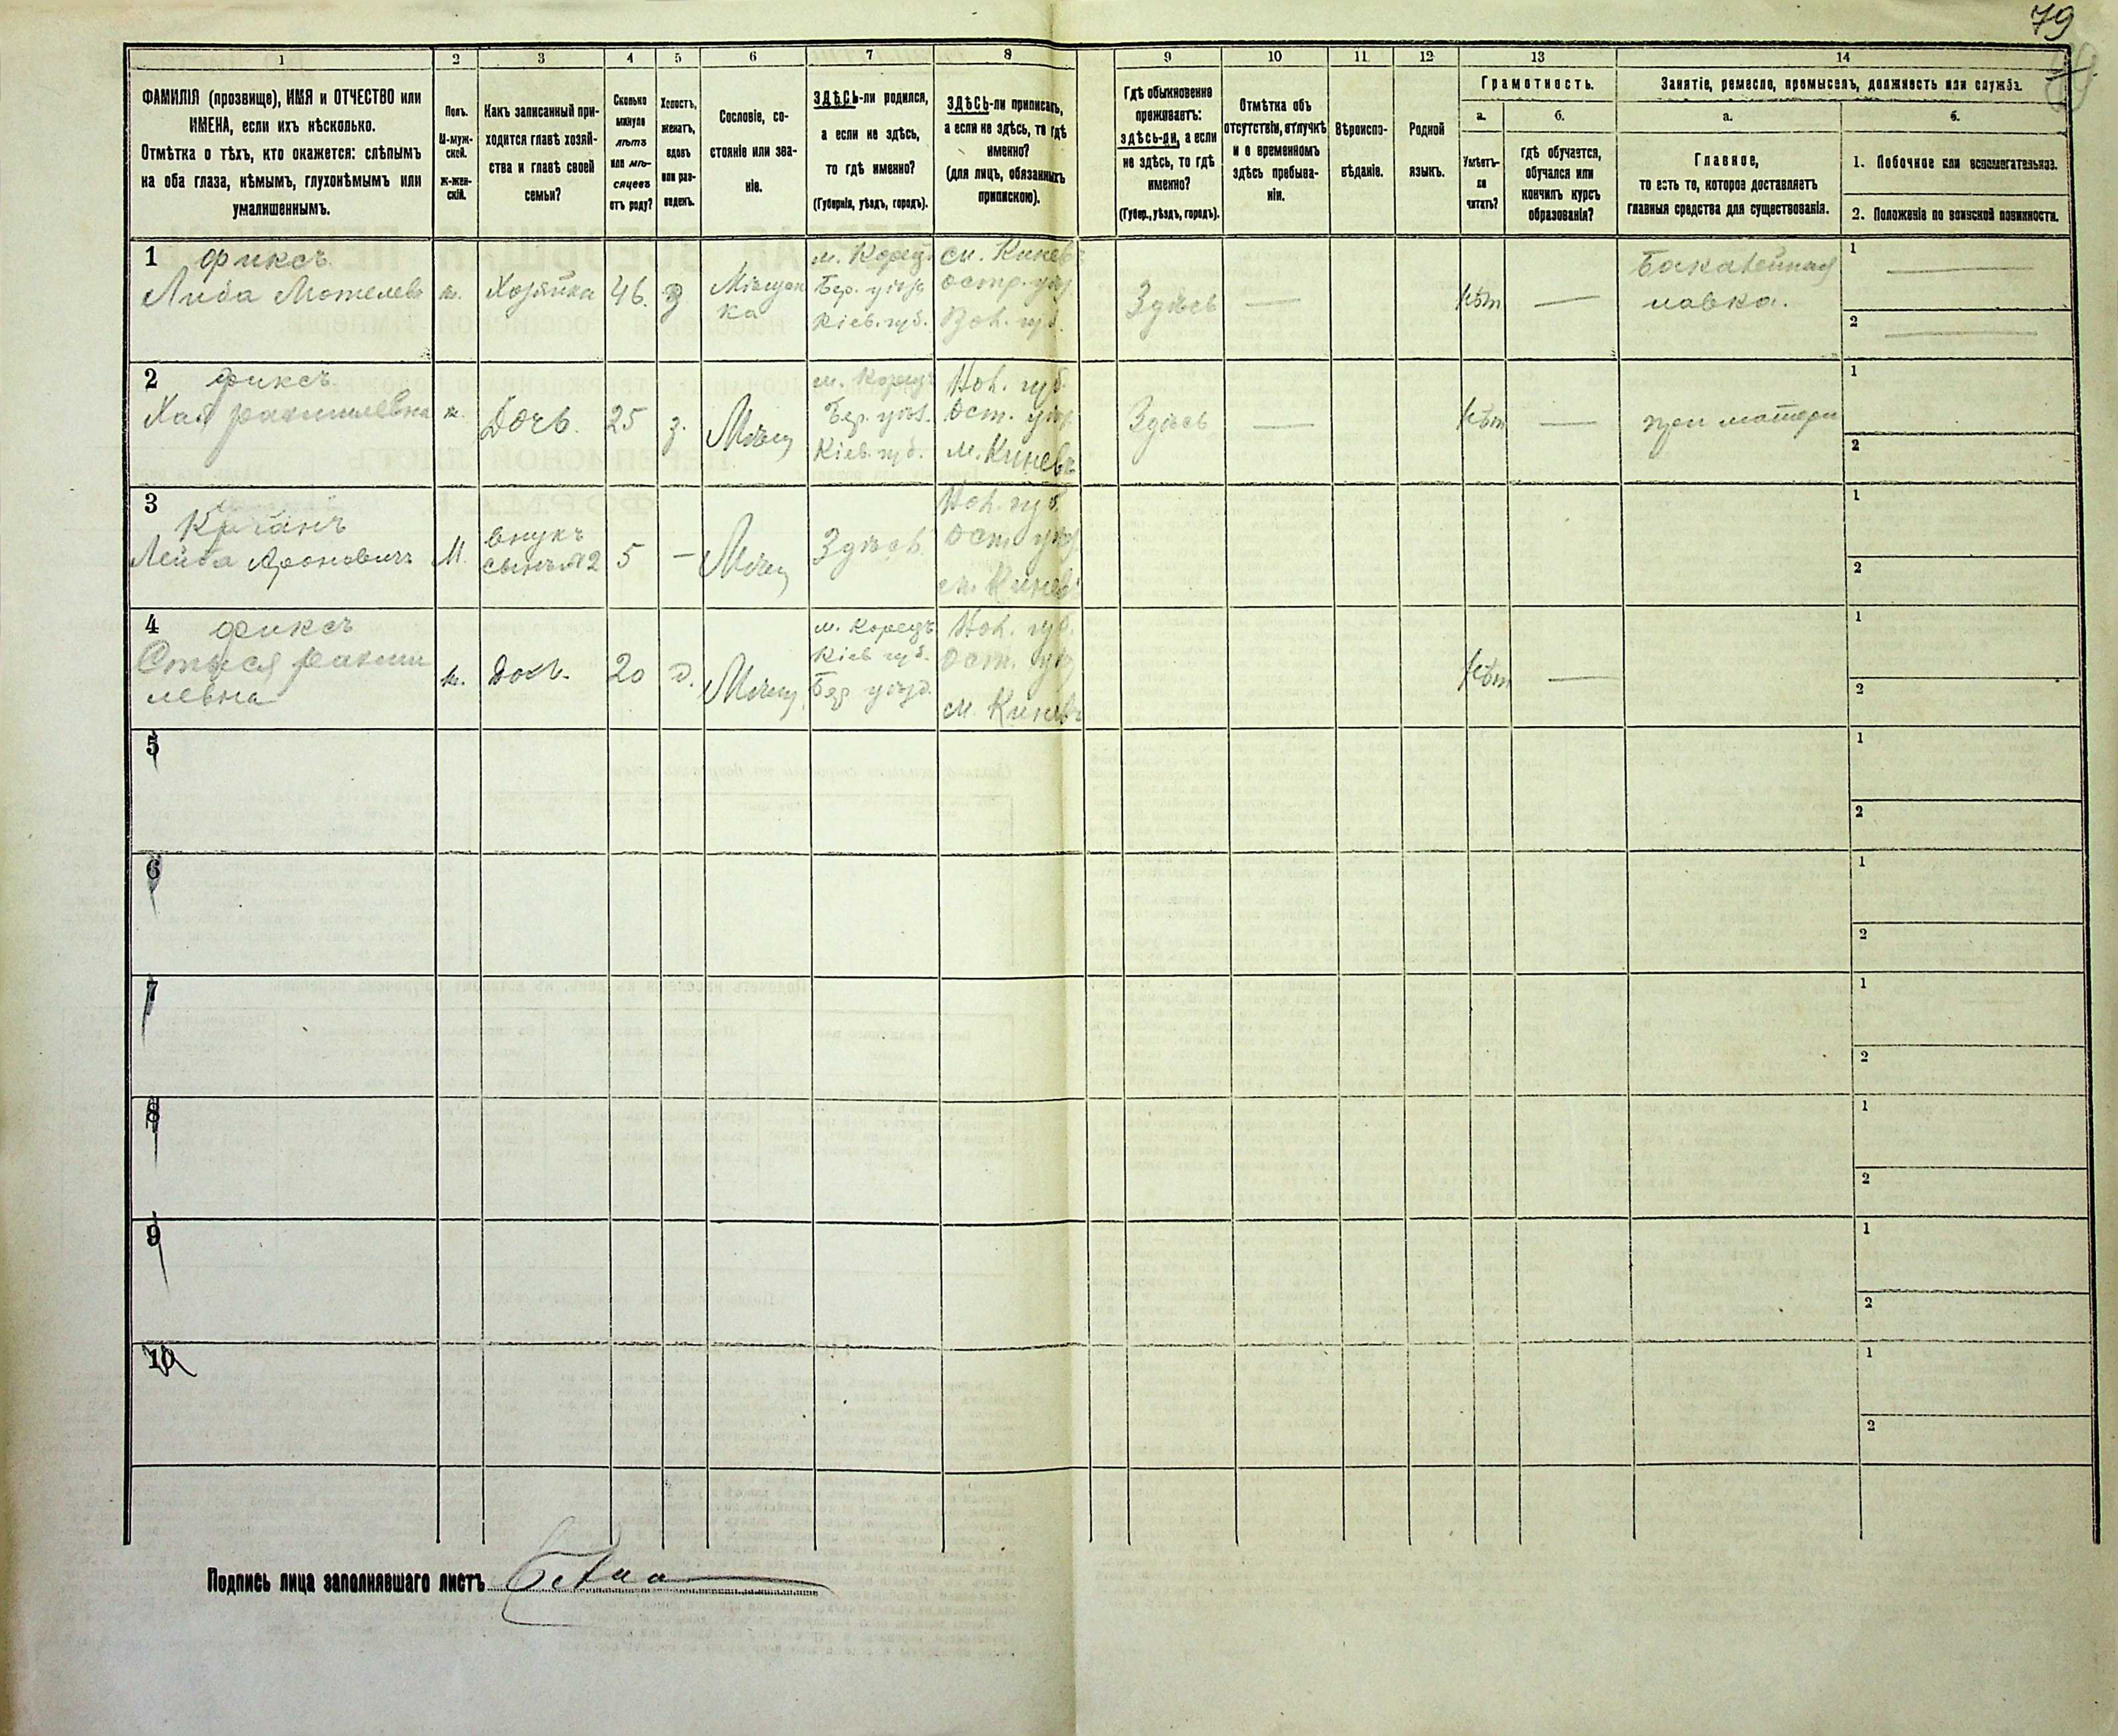 79
1
2
3
4
5
6
7
8
9
10
11
12
13
14
ФАМИЛІЯ (прозвище), ИМЯ и ОТЧЕСТВО или
ИМЕНА, если ихъ нѣсколько.
Отмѣтка о тѣхъ, кто окажется: слѣпымъ
на оба глаза, нѣмымъ, глухонѣмымъ или
умалишеннымъ.
Полъ.
М-муж-
ской.
Ж-жен-
скій.
Какъ записанный при-
ходится главѣ хозяй-
ства и главѣ своей
семьи?
Сколько
минуло
лѣтъ
или мѣ-
сяцевъ
отъ роду?
Холостъ,
женатъ,
вдовъ
или раз-
веденъ.
Сословіе, со-
стояніе или зва-
ніе.
ЗДѢСЬ-ли родился,
а если не здѣсь,
то гдѣ именно?
(Губернія, уѣздъ, городъ).
ЗДѢСЬ-ли приписанъ,
а если не здѣсь, то гдѣ
именно?
(для лицъ, обязанныхъ
припискою).
Гдѣ обыкновенно
проживаетъ:
здѣсь-ли, а если
не здѣсь, то гдѣ
именно?
(Губер., уѣздъ, городъ).
Отмѣтка объ
отсутствіи, отлучкѣ
и о временномъ
здѣсь пребыва-
ніи.
Вѣроиспо-
вѣданіе.
Родной
языкъ.
Грамотность.
а.
Умѣетъ-
ли
читать?
б.
гдѣ обучается,
обучался или
кончилъ курсъ
образованія?
Занятіе, ремесло, промыселъ, должность или служба.
а.
Главное,
то есть то, которое доставляетъ
главныя средства для существованія.
б.
1. Побочное или вспомогательное.
2. Положеніе по воинской повинности.
1 Фиксъ
Либа Мотелевъ
ж.
Хозяйка
46.
Мѣщан
ка
м. Корецъ
Бер. уѣзд
Кіев. губ.
см. Киневъ
Остр. уѣз
Вол. губ.
Здѣсь
—
нѣт
—
Бакалейная
лавка.
1 —
2 —
2 Фиксъ
Хая
ж.
Дочь.
25
з.
Мѣщ
м. Корецъ
Бер. уѣз.
Кіев. губ.
Вол. губ.
Ост. уѣз
м. Киневъ
Здѣсь
—
нѣт
—
при матери
1
2
3
Лейба Ароновичъ
М.
внукъ
сынъ №2
5
—
Мѣщ
Здѣсь.
Вол. губ.
Ост уѣз
см. Киневъ
1
2
4 Фиксъ
левна
ж.
Дочь.
20
д.
Мѣщ.
м. Корецъ
Кіев губ.
Бер уѣзд.
Вол. губ.
Ост. уѣз
см. Киневъ
нѣт
—
1
2
5
1
2
6
1
2
7
1
2
8
1
2
9
1
2
10
1
2
Подпись лица заполнявшаго листъ